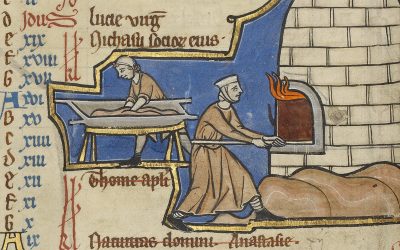 Idus lucie virg
e xix Nichasii socior eius
f xviii
g xvii
A xvi
b xv
c xiiii
d xiii
e xii Thome apli
f xi
g x
A Natiuitas domini. Anastasie.